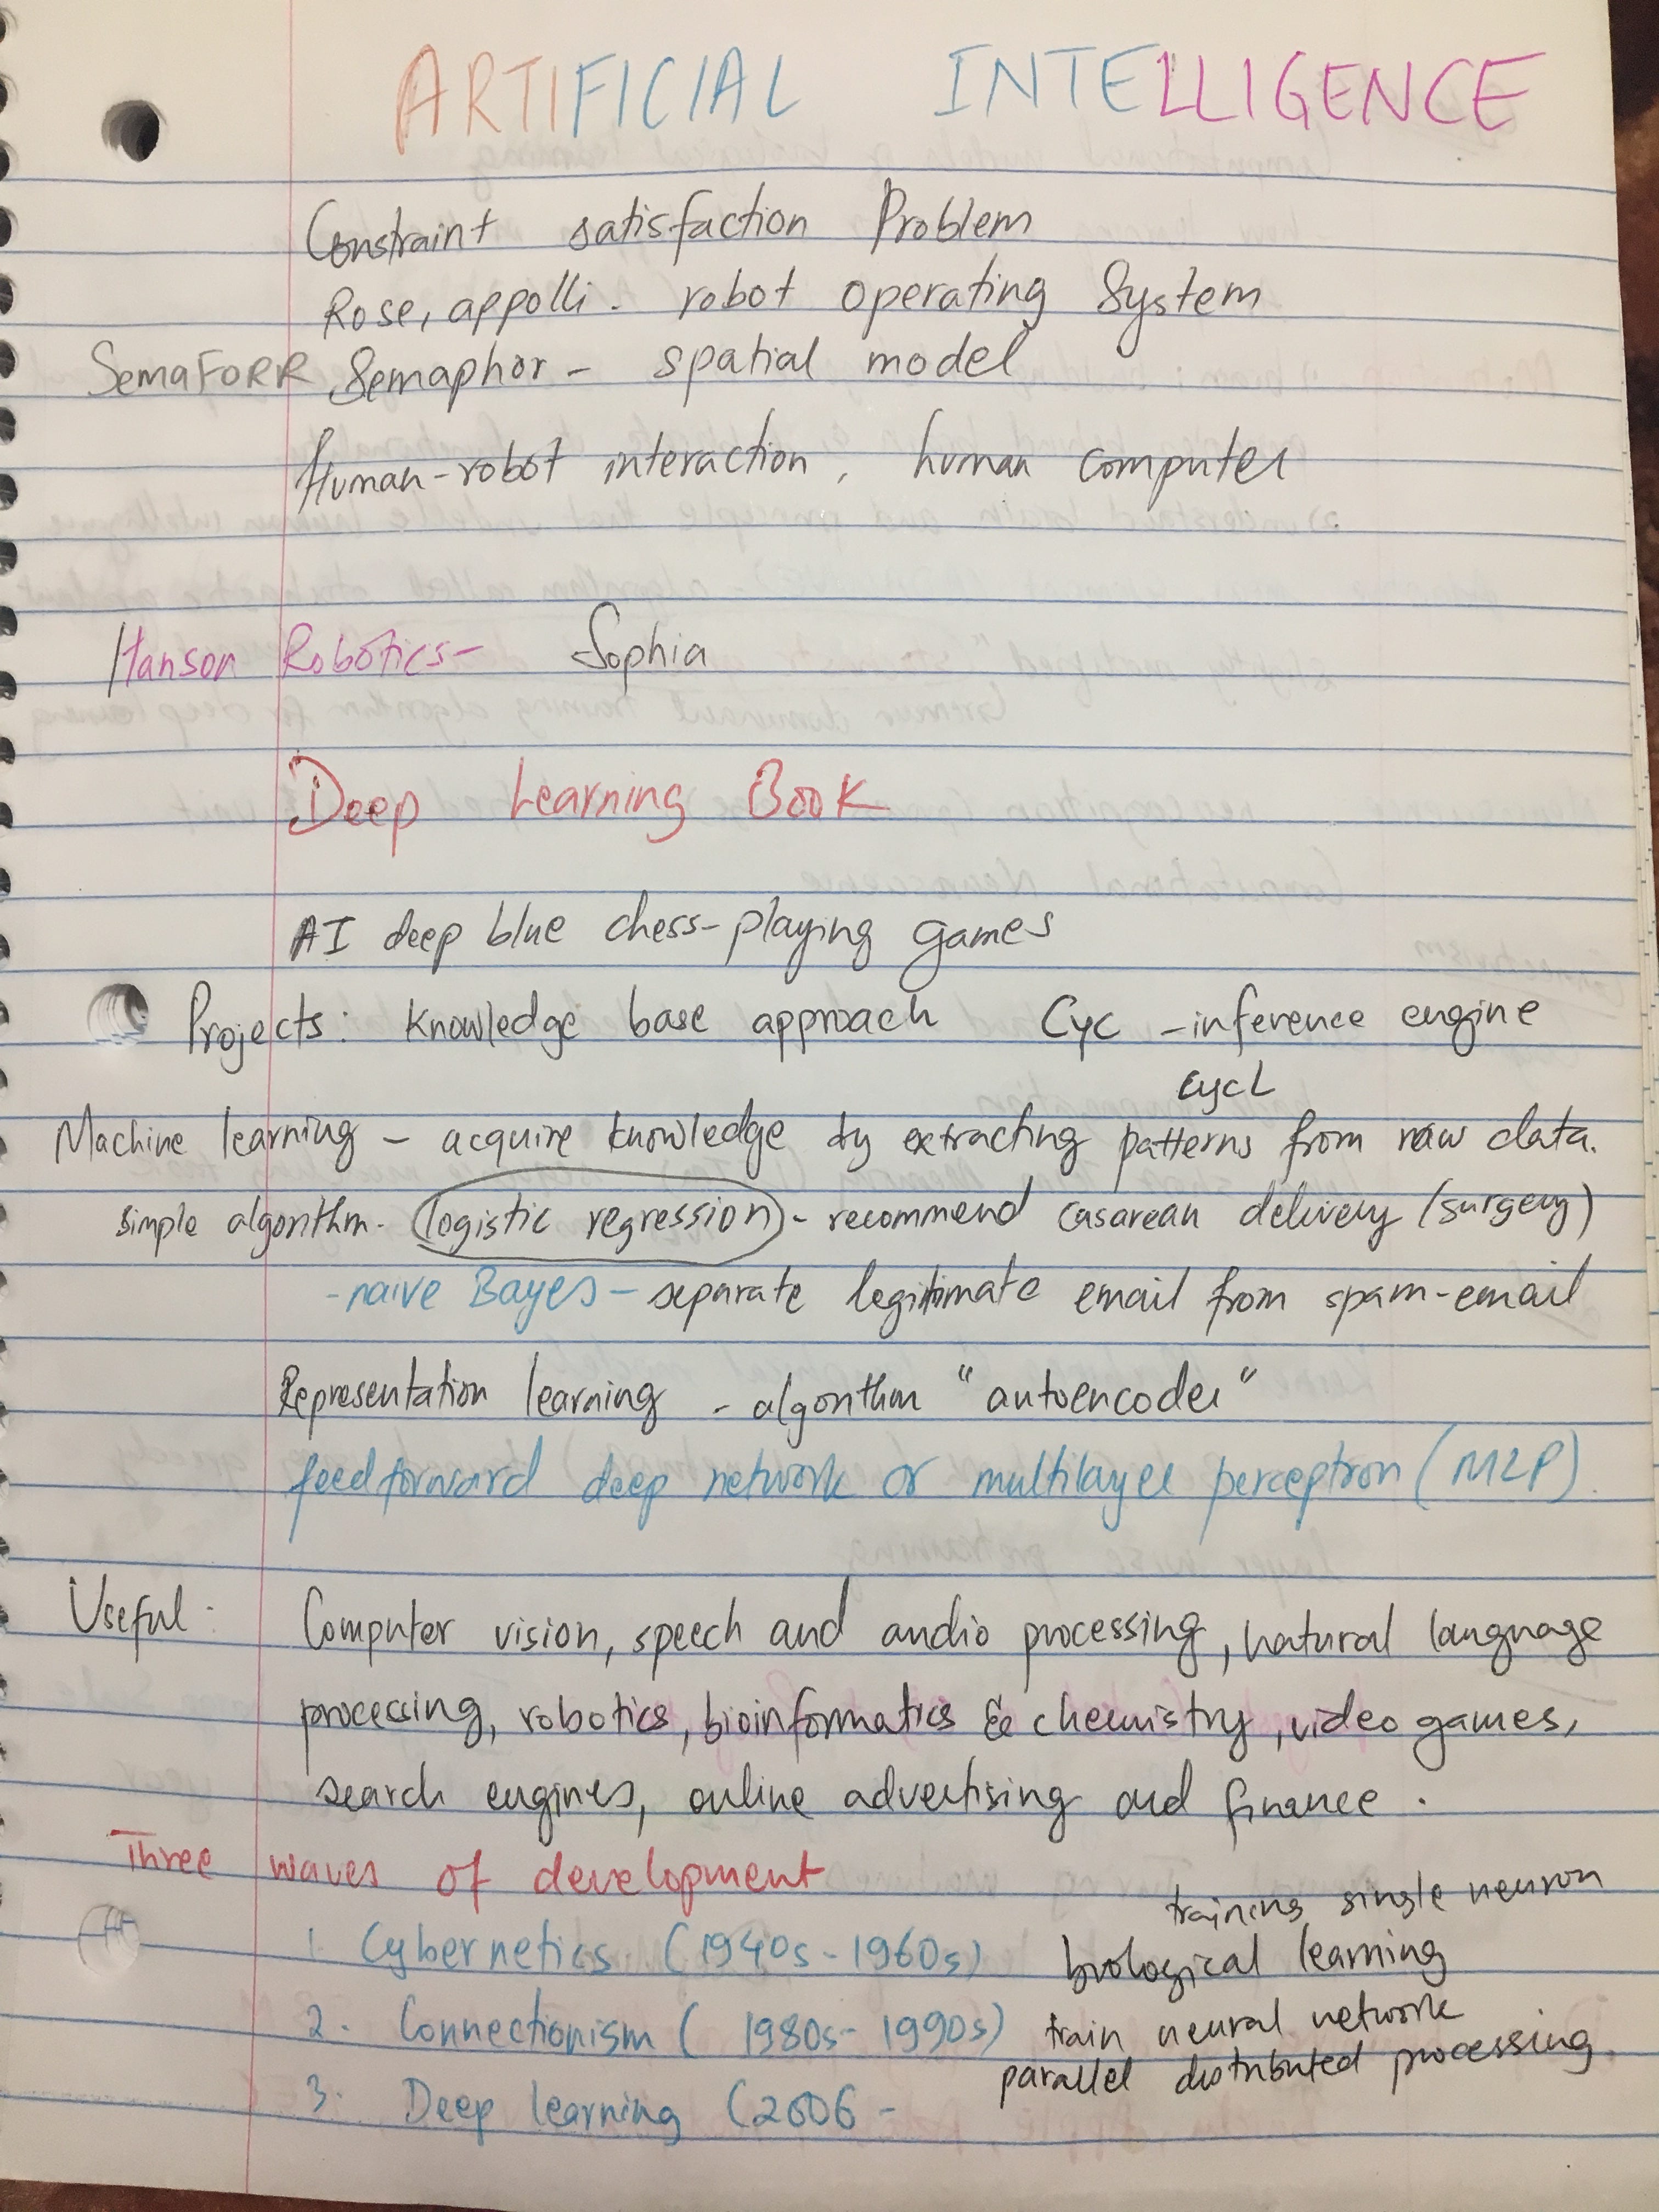 ARTIFICIAL INTELLIGENCE
Constraint satisfaction Problem
Rose, appolli. robot operating System
SemaFORR Semaphor - spatial model
Human-robot interaction, human computer
Hanson Robotics- Sophia
Deep Learning Book
AI deep blue chess-playing games
Projects: Knowledge base approach Cyc -inference engine
CycL
Machine learning - acquire knowledge by extracting patterns from raw data.
simple algorithm. logistic regression - recommend casarean delivery (surgery)
-naive Bayes - separate legitimate email from spam-email
Representation learning - algorithm "autoencoder"
feedforward deep network or multilayer perceptron (MLP).
Useful: Computer vision, speech and audio processing, natural language
processing, robotics, bioinformatics & chemistry, video games,
search engines, online advertising and finance.
Three waves of development
training single neuron
1. Cybernetics (1940s-1960s) biological learning
2. Connectionism (1980s-1990s) train neural network
parallel distributed processing.
3. Deep learning (2006 -